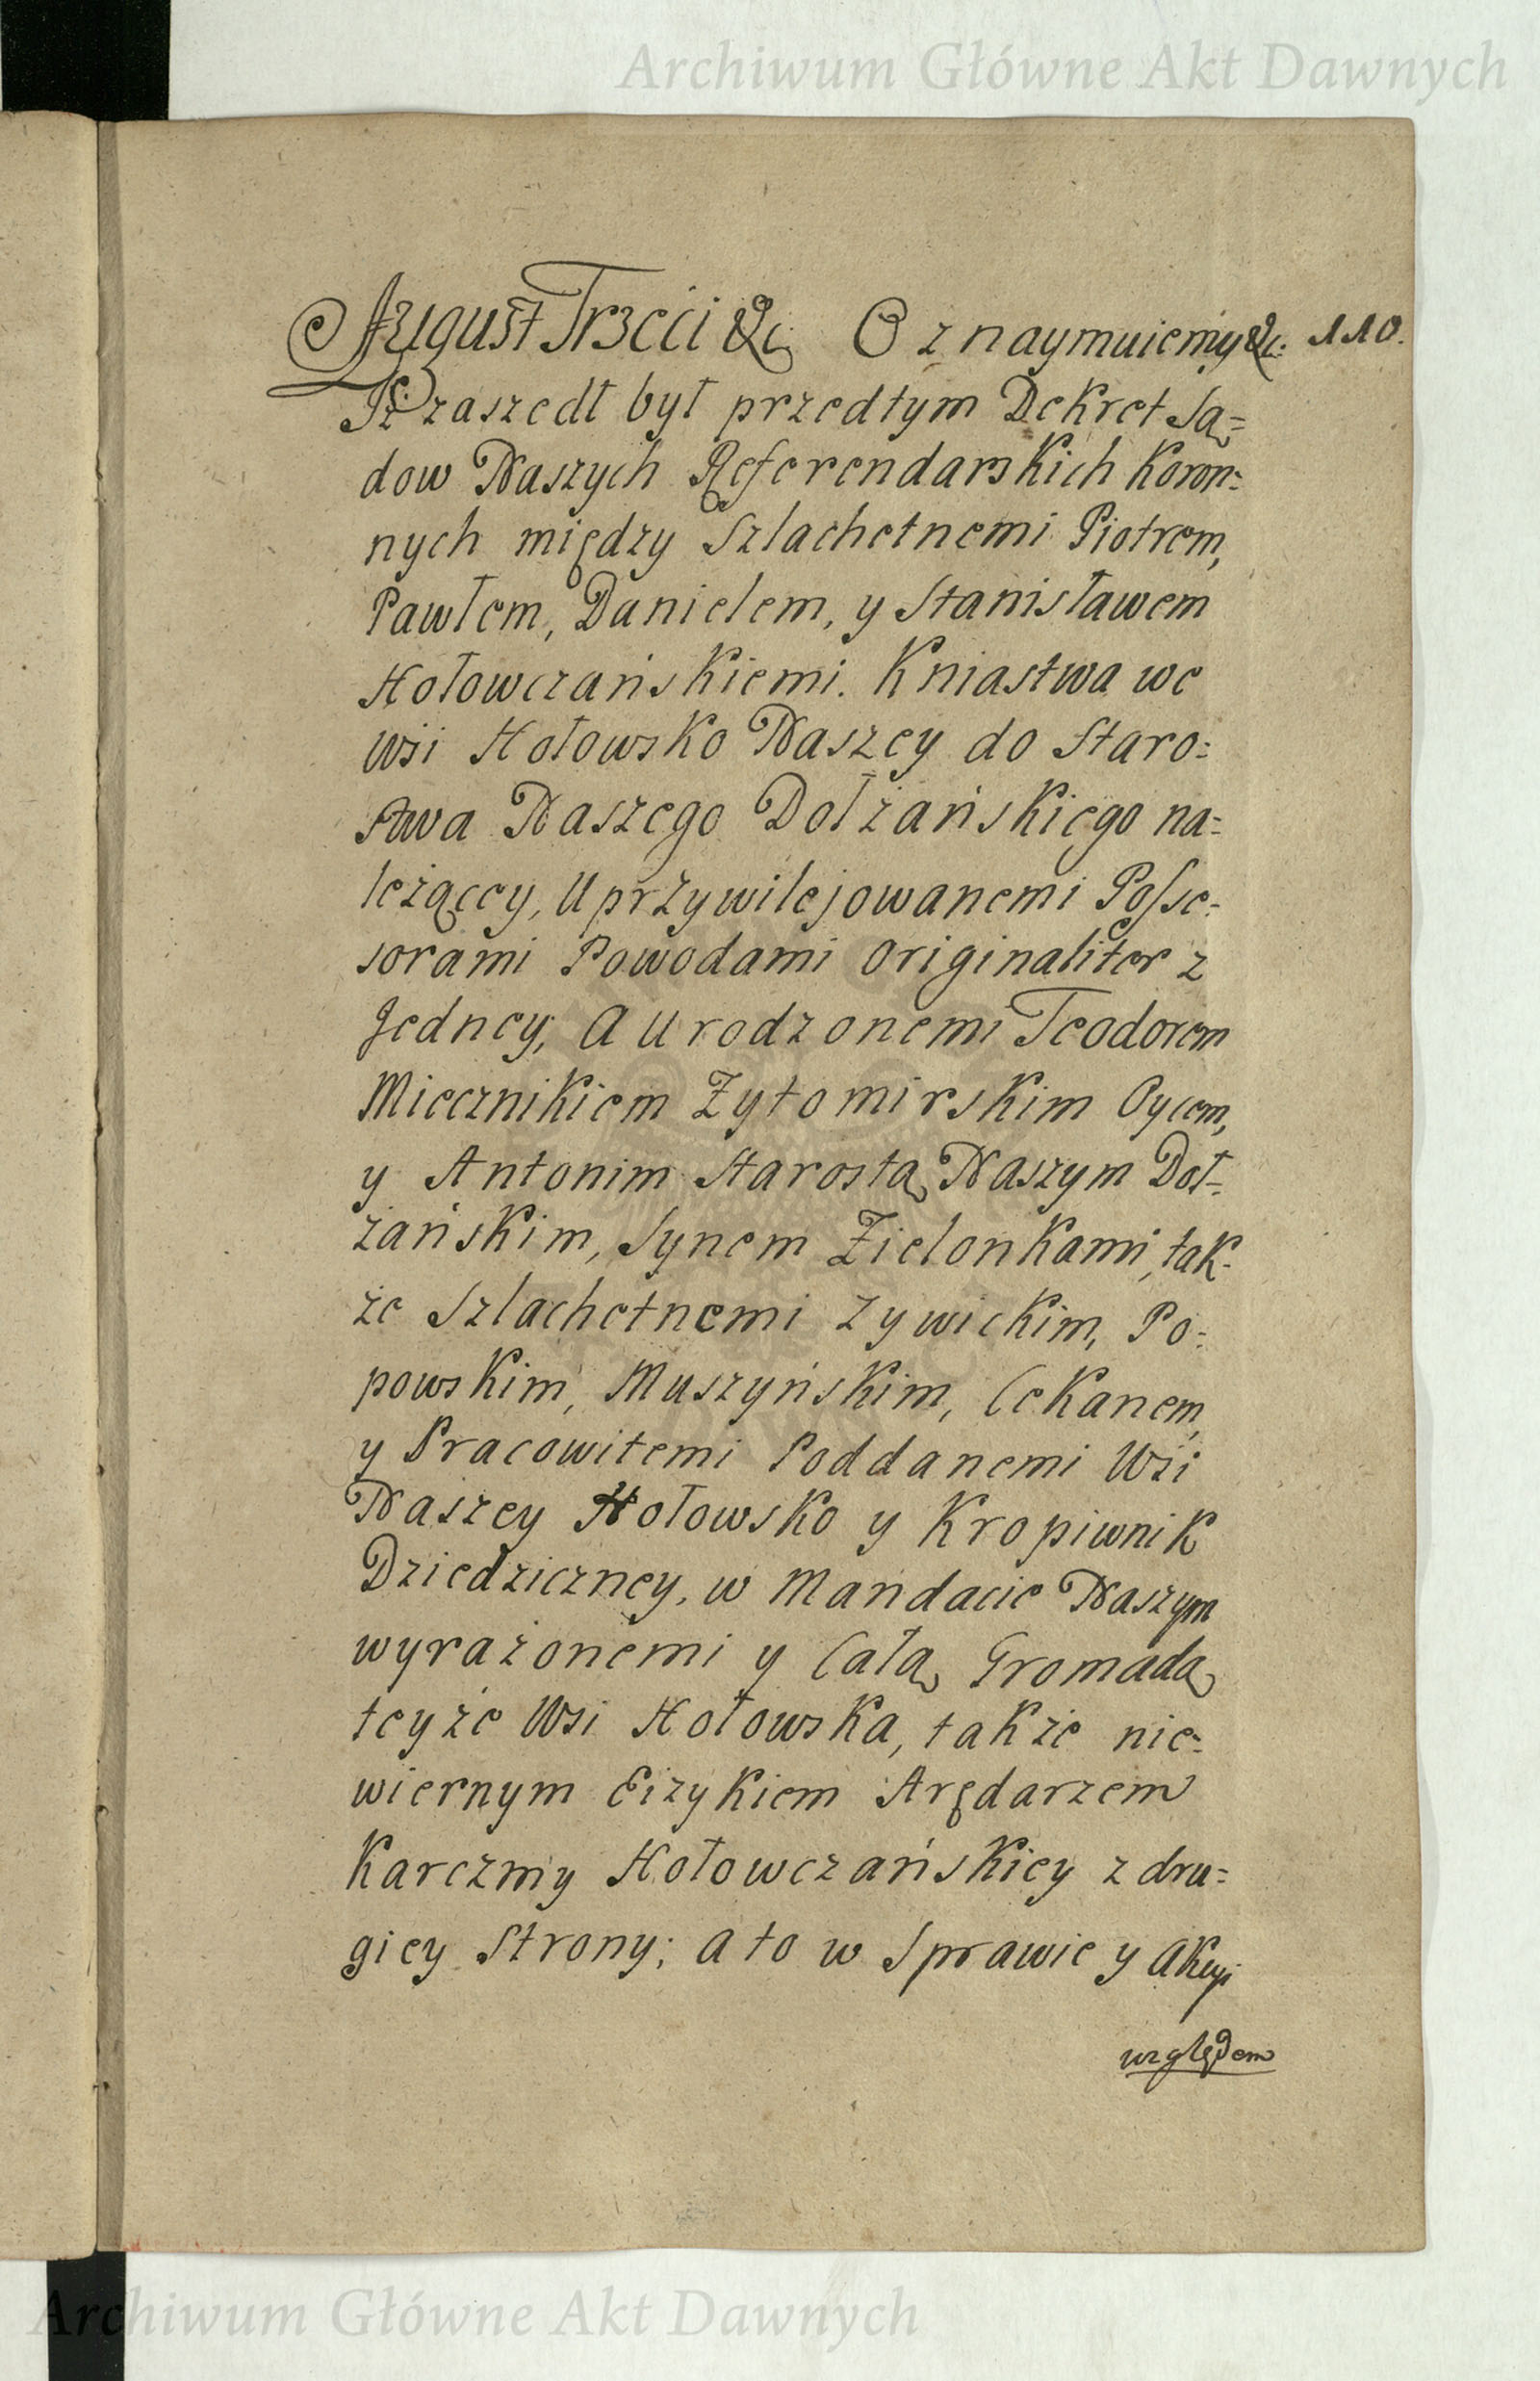 Archiwum Główne Akt Dawnych
August Trzeci &c. Oznaymuiemy &c. 110.
Iż zaszedł był przedtym Dekret Są=
dow Naszych Referendarskich Koron=
nych między Szlachetnemi Piotrem,
Pawłem, Danielem, y Stanisławem
Hołowczańskiemi. Kniastwa we
Wsi Hołowsko Naszey do Staro=
stwa Naszego Dołżańskiego na=
leżącey, Uprzywilejowanemi Posse=
sorami Powodami Originaliter z
Jedney; A Urodzonemi Teodorem
Miecznikiem Żytomirskim Oycem,
y Antonim Starostą Naszym Doł=
żańskim, Synem Zielonkami, tak=
że Szlachetnemi Zywickim, Po=
powskim, Muszyńskim, Cekanem,
y Pracowitemi Poddanemi Wsi
Naszey Hołowsko y Kropiwnik
Dziedziczney, w Mandacie Naszym
wyrażonemi y Całą Gromadą
teyże Wsi Hołowska, także nie=
wiernym Eizykiem Arędarzem
Karczmy Hołowczańskiey z dru=
giey Strony; a to w Sprawie y Akcyi
względem
Archiwum Główne Akt Dawnych